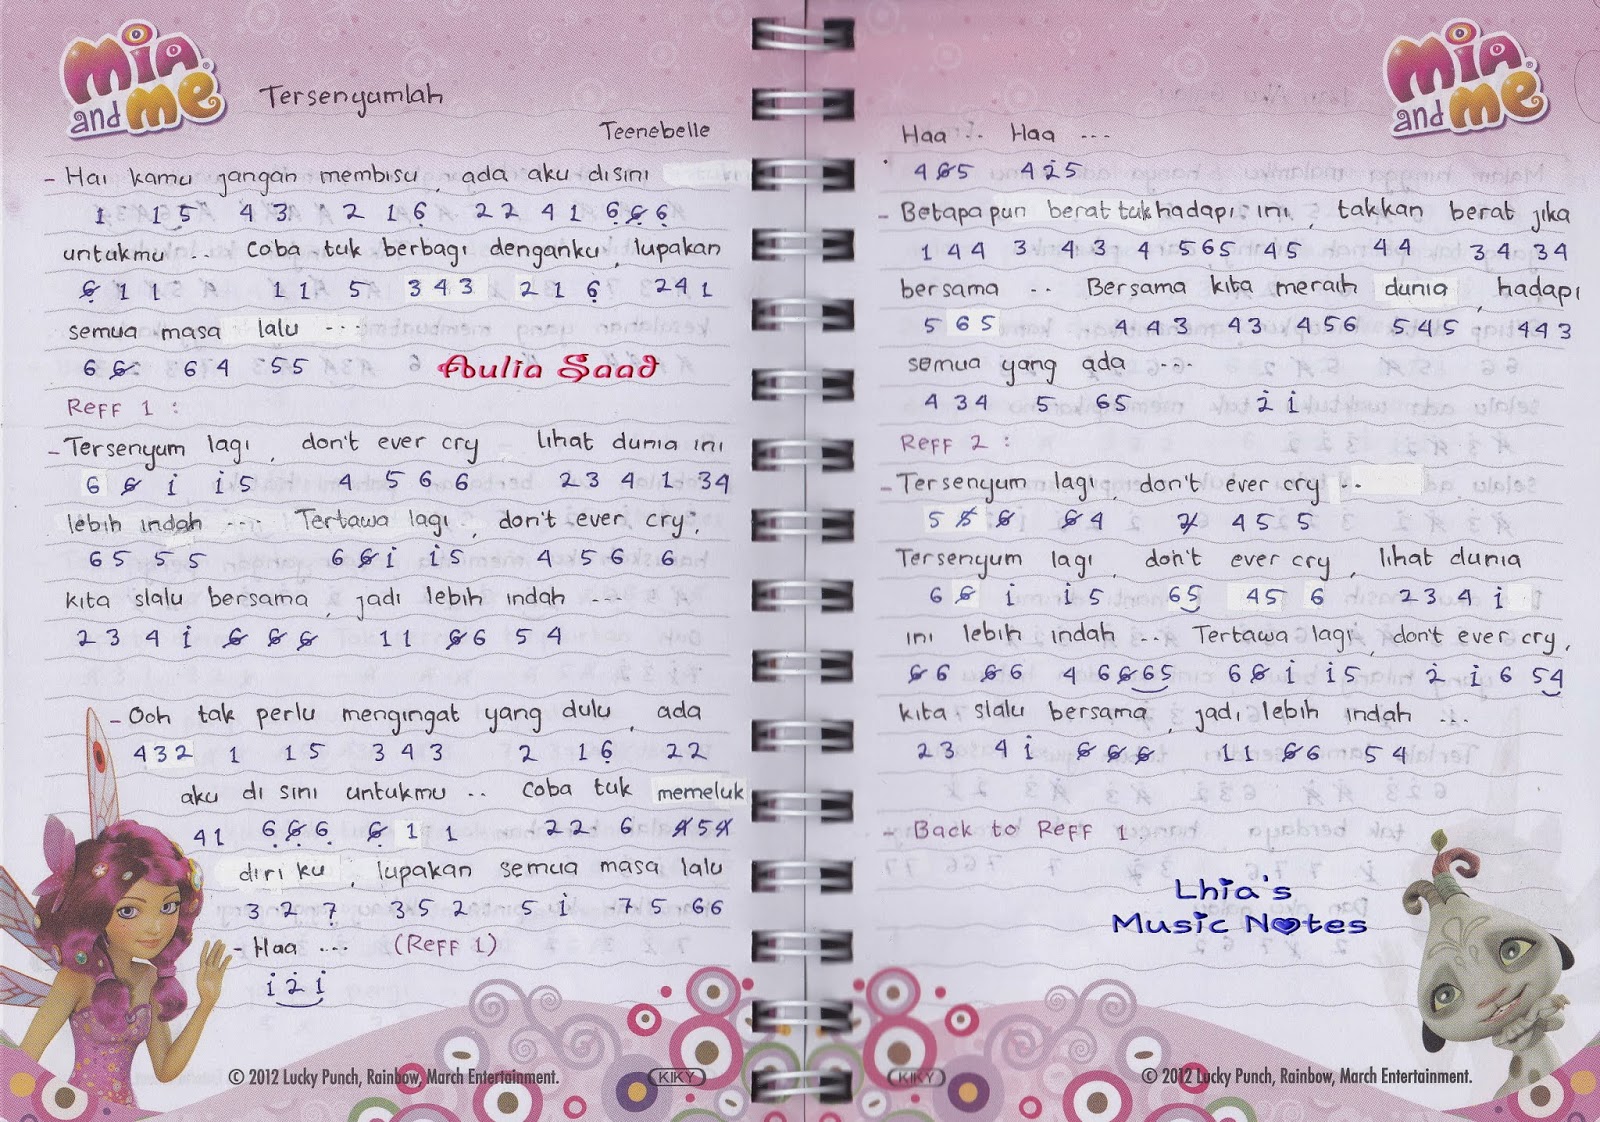 mia and me
Tersenyumlah
Teenebelle
- Hai kamu jangan membisu, ada aku disini
1 1 5 4 3 2 1 6 2 2 4 1 6 6 6
untukmu .. Coba tuk berbagi denganku, lupakan
6 1 1 1 1 5 3 4 3 2 1 6 2 4 1
semua masa lalu ...
6 6 6 4 5 5
Aulia Saad
Reff 1 :
- Tersenyum lagi, don't ever cry lihat dunia ini
6 6 i i 5 4 5 6 6 2 3 4 1 3 4
lebih indah .... Tertawa lagi, don't ever cry,
6 5 5 5 6 6 i i 5 4 5 6 6
kita slalu bersama, jadi lebih indah ...
2 3 4 i 6 6 6 1 1 6 6 5 4
- Ooh tak perlu mengingat yang dulu, ada
4 3 2 1 1 5 3 4 3 2 1 6 2 2
aku di sini untukmu .. Coba tuk memeluk
4 1 6 6 6 6 1 1 2 2 6 4 5 4
diri ku, lupakan semua masa lalu
3 2 7 3 5 2 5 i 7 5 6 6
- Haa .... (Reff 1)
i 2 i
© 2012 Lucky Punch, Rainbow, March Entertainment.
KIKY
mia and me
Haa .. Haa ...
4 6 5 4 2 5
- Betapa pun berat tuk hadapi ini, takkan berat jika
1 4 4 3 4 3 4 5 6 5 4 5 4 4 3 4 3 4
bersama .. Bersama kita meraih dunia, hadapi
5 6 5 4 4 3 4 3 4 5 6 5 4 5 4 4 3
semua yang ada ...
4 3 4 5 6 5 2 i
Reff 2 :
- Tersenyum lagi, don't ever cry ..
5 5 6 6 4 2 4 5 5
Tersenyum lagi, don't ever cry, lihat dunia
6 6 i i 5 6 5 4 5 6 2 3 4 i
ini lebih indah .. Tertawa lagi, don't ever cry,
6 6 6 6 4 6 6 6 5 6 6 i i 5 2 i 6 5 4
kita slalu bersama, jadi lebih indah ...
2 3 4 i 6 6 6 1 1 6 6 5 4
- Back to Reff 1.
Lhia's
Music Notes
KIKY
© 2012 Lucky Punch, Rainbow, March Entertainment.